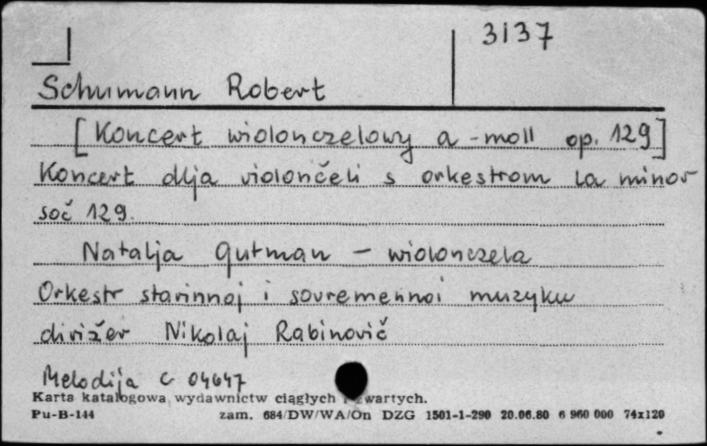 3137
Schumann Robert
[Koncert wiolonczelowy a-moll op. 129]
Koncert dlja violončeli s orkestrom la minor
soč 129.
Natalja Gutman – wiolonczela
Orkestr starinnoj i sovremennoi muzyku
dirižer Nikolaj Rabinovič
Melodija C 04647
Karta katalogowa wydawnictw ciągłych i zwartych.
Pu-B-144 zam. 684/DW/WA/On DZG 1501-1-290 20.06.80 6 960 000 74x120